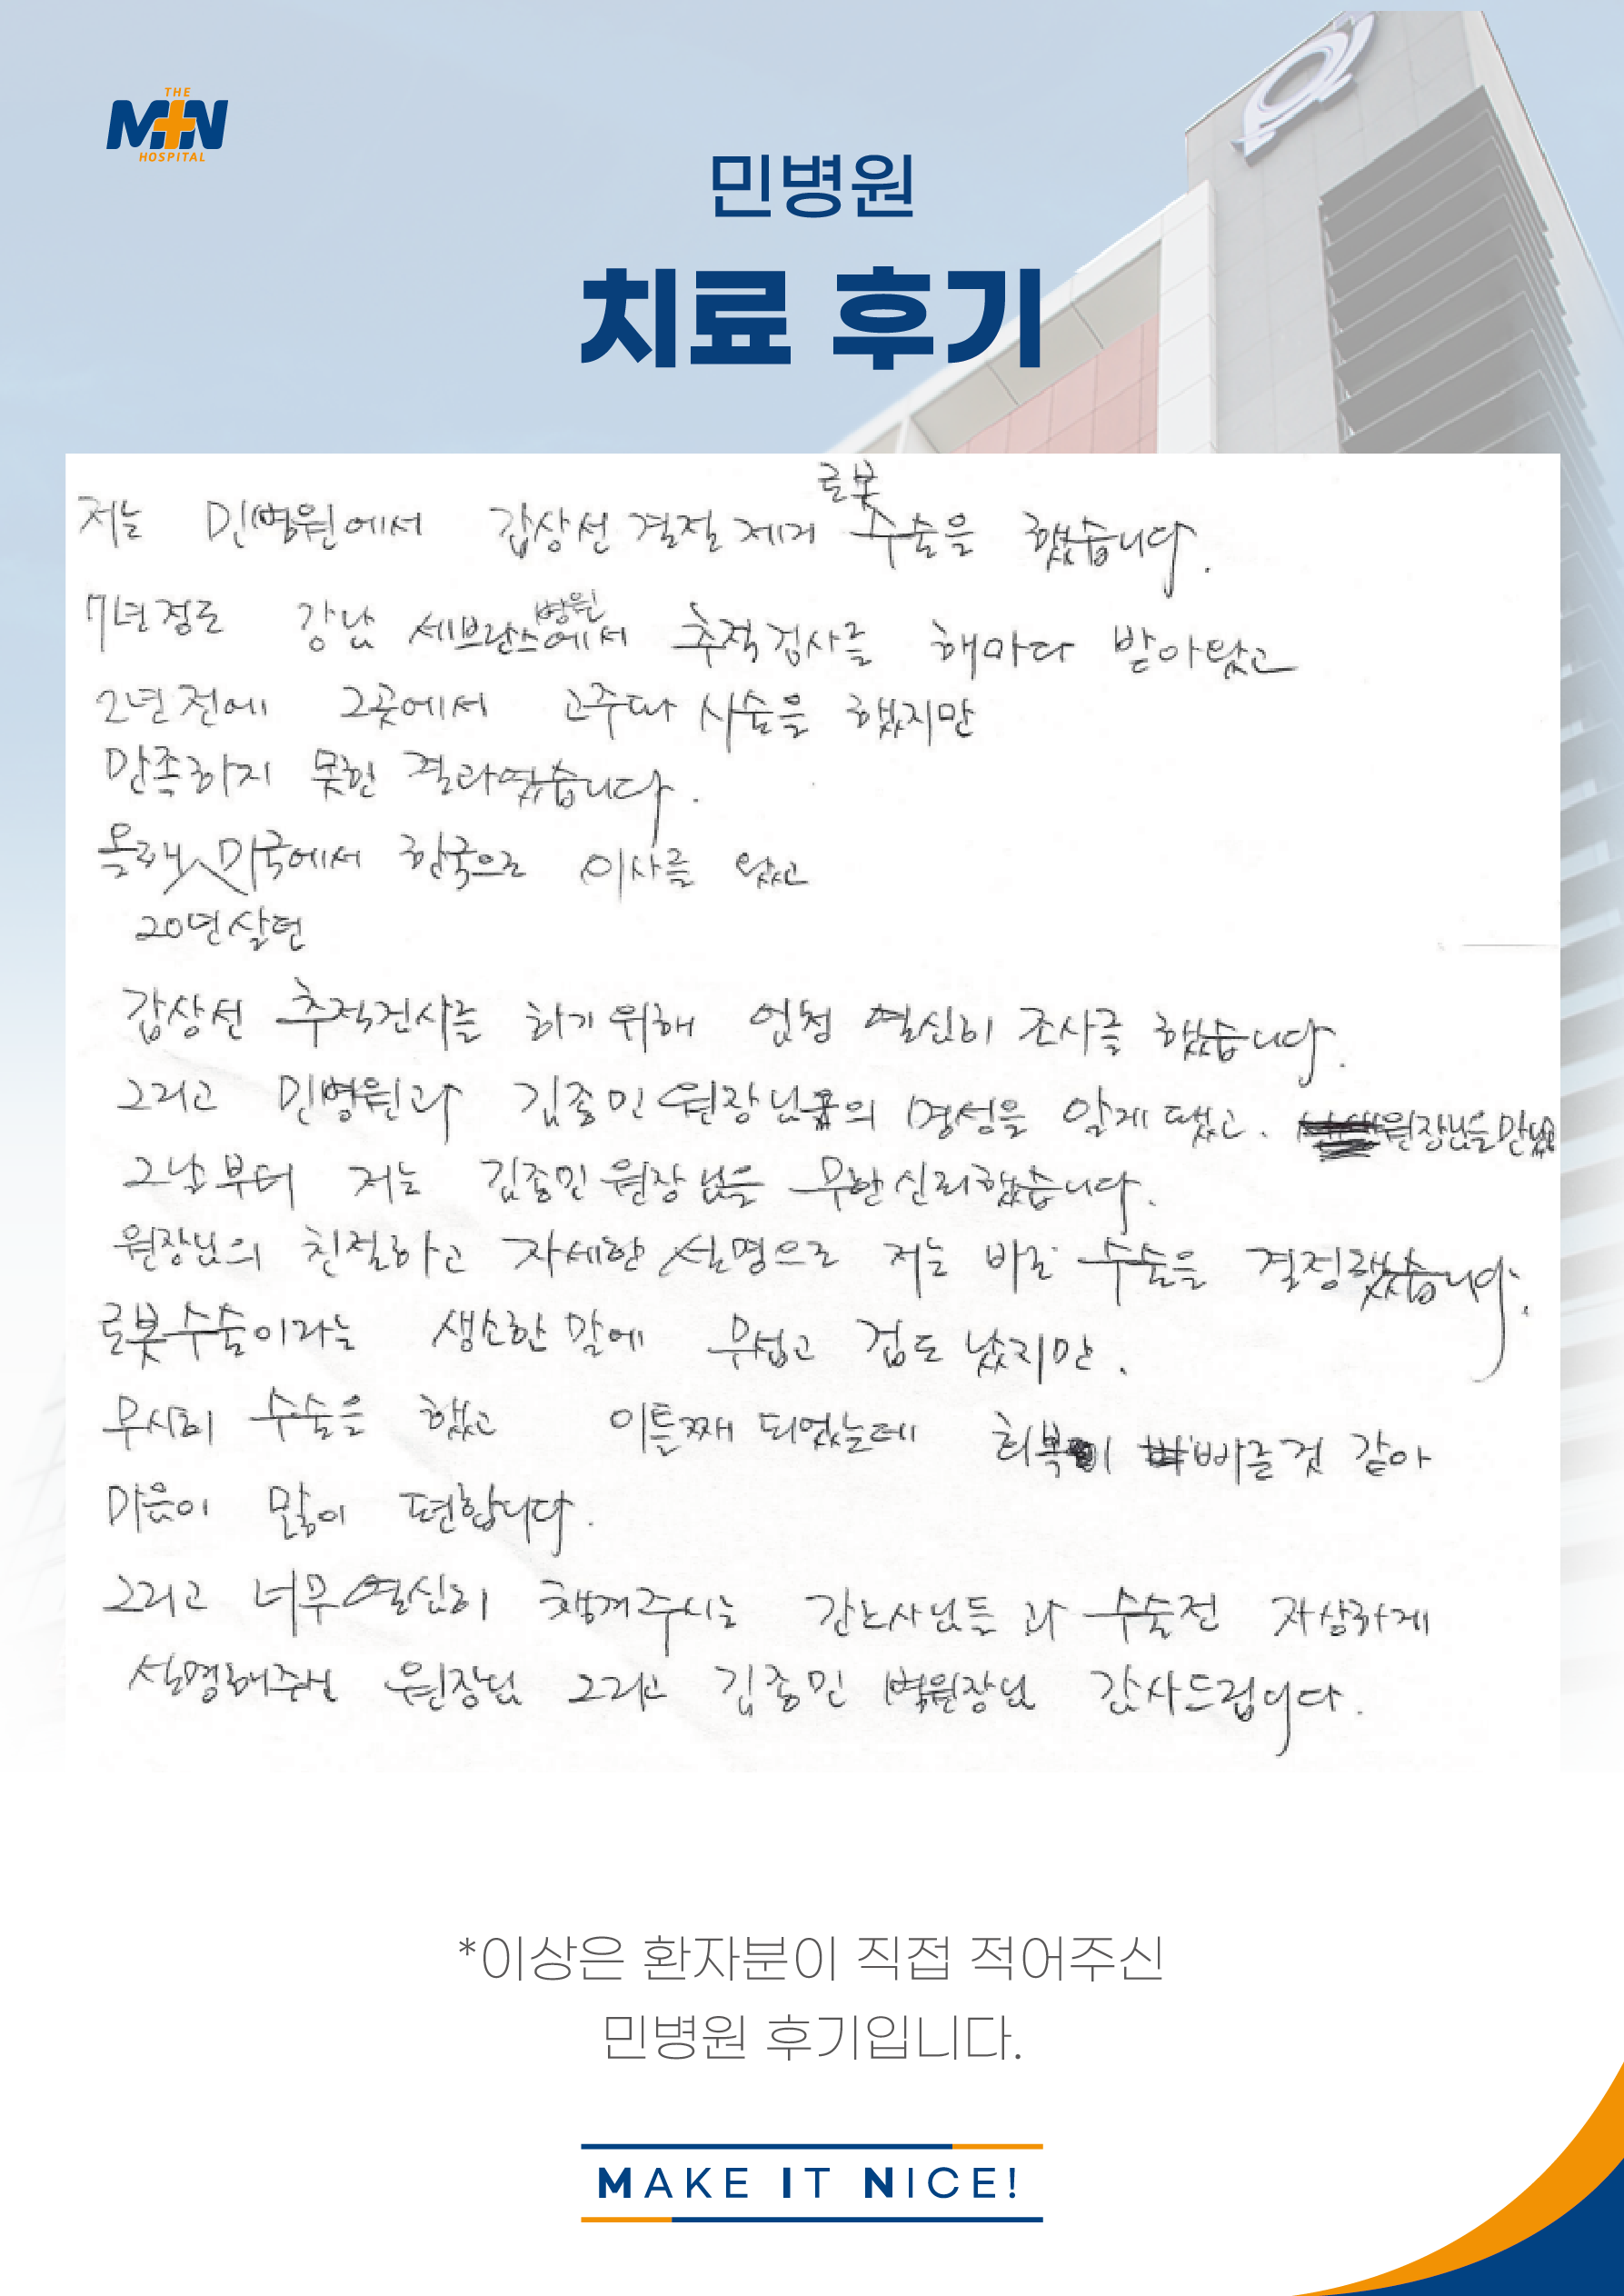 THE
MIN
HOSPITAL
민병원
치료 후기
로봇
저는 민병원에서 갑상선 결절 제거 수술을 했습니다.
병원
7년정도 강남 세브란스에서 추적검사를 해마다 받아왔고
2년전에 그곳에서 고주파 시술을 했지만
만족하지 못한 결과였습니다.
올해 미국에서 한국으로 이사를 왔고
20년살던
갑상선 추적검사를 하기위해 엄청 열심히 조사를 했습니다.
그리고 민병원과 김종민 원장님의 명성을 알게 됐고. 원장님을 만났고
그날부터 저는 김종민 원장님을 무한신뢰했습니다.
원장님의 친절하고 자세한 설명으로 저는 바로 수술을 결정했습니다.
로봇수술이라는 생소한 말에 무섭고 겁도 났지만.
무사히 수술을 했고 이틀째 되었는데 회복이 빠를것 같아
마음이 많이 편합니다.
그리고 너무열심히 챙겨주시는 간호사님들과 수술전 자상하게
설명해주신 원장님 그리고 김종민 병원장님 감사드립니다.
*이상은 환자분이 직접 적어주신
민병원 후기입니다.
MAKE IT NICE!